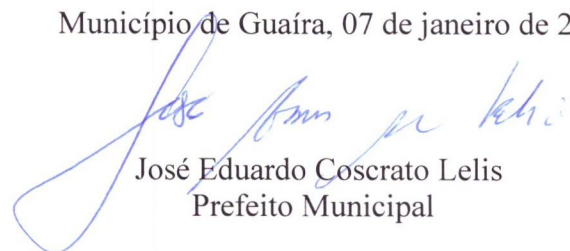 Município de Guaíra, 07 de janeiro de 2
José Eduardo Coscrato Lelis
Prefeito Municipal